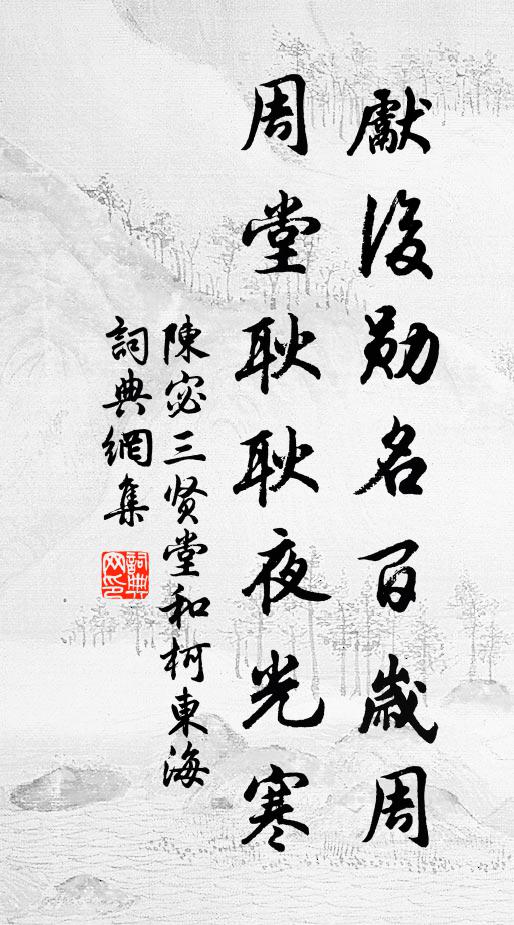 獻後勛名百歲周
周堂耿耿夜光寒
陳宓三贤堂和柯東海
詞典網集
詞典網印